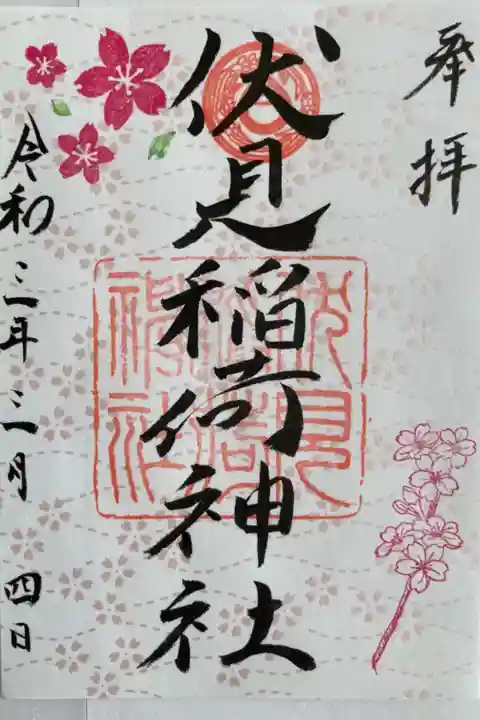 奉拝
伏見稲荷神社
伏見稲荷神社
令和三年三月四日